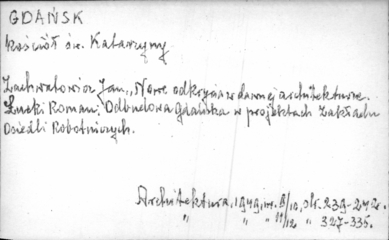 GDAŃSK
kościół św. Katarzyny
Zachwatowicz Jan, Nowe odkrycia w dawnej architekturze.
Łucki Roman, Odbudowa Gdańska w projektach Zakładu
Osiedli Robotniczych.
Architektura, 1949, nr. 8/10, str. 239-242.
" " " 11/12 " 327-335.